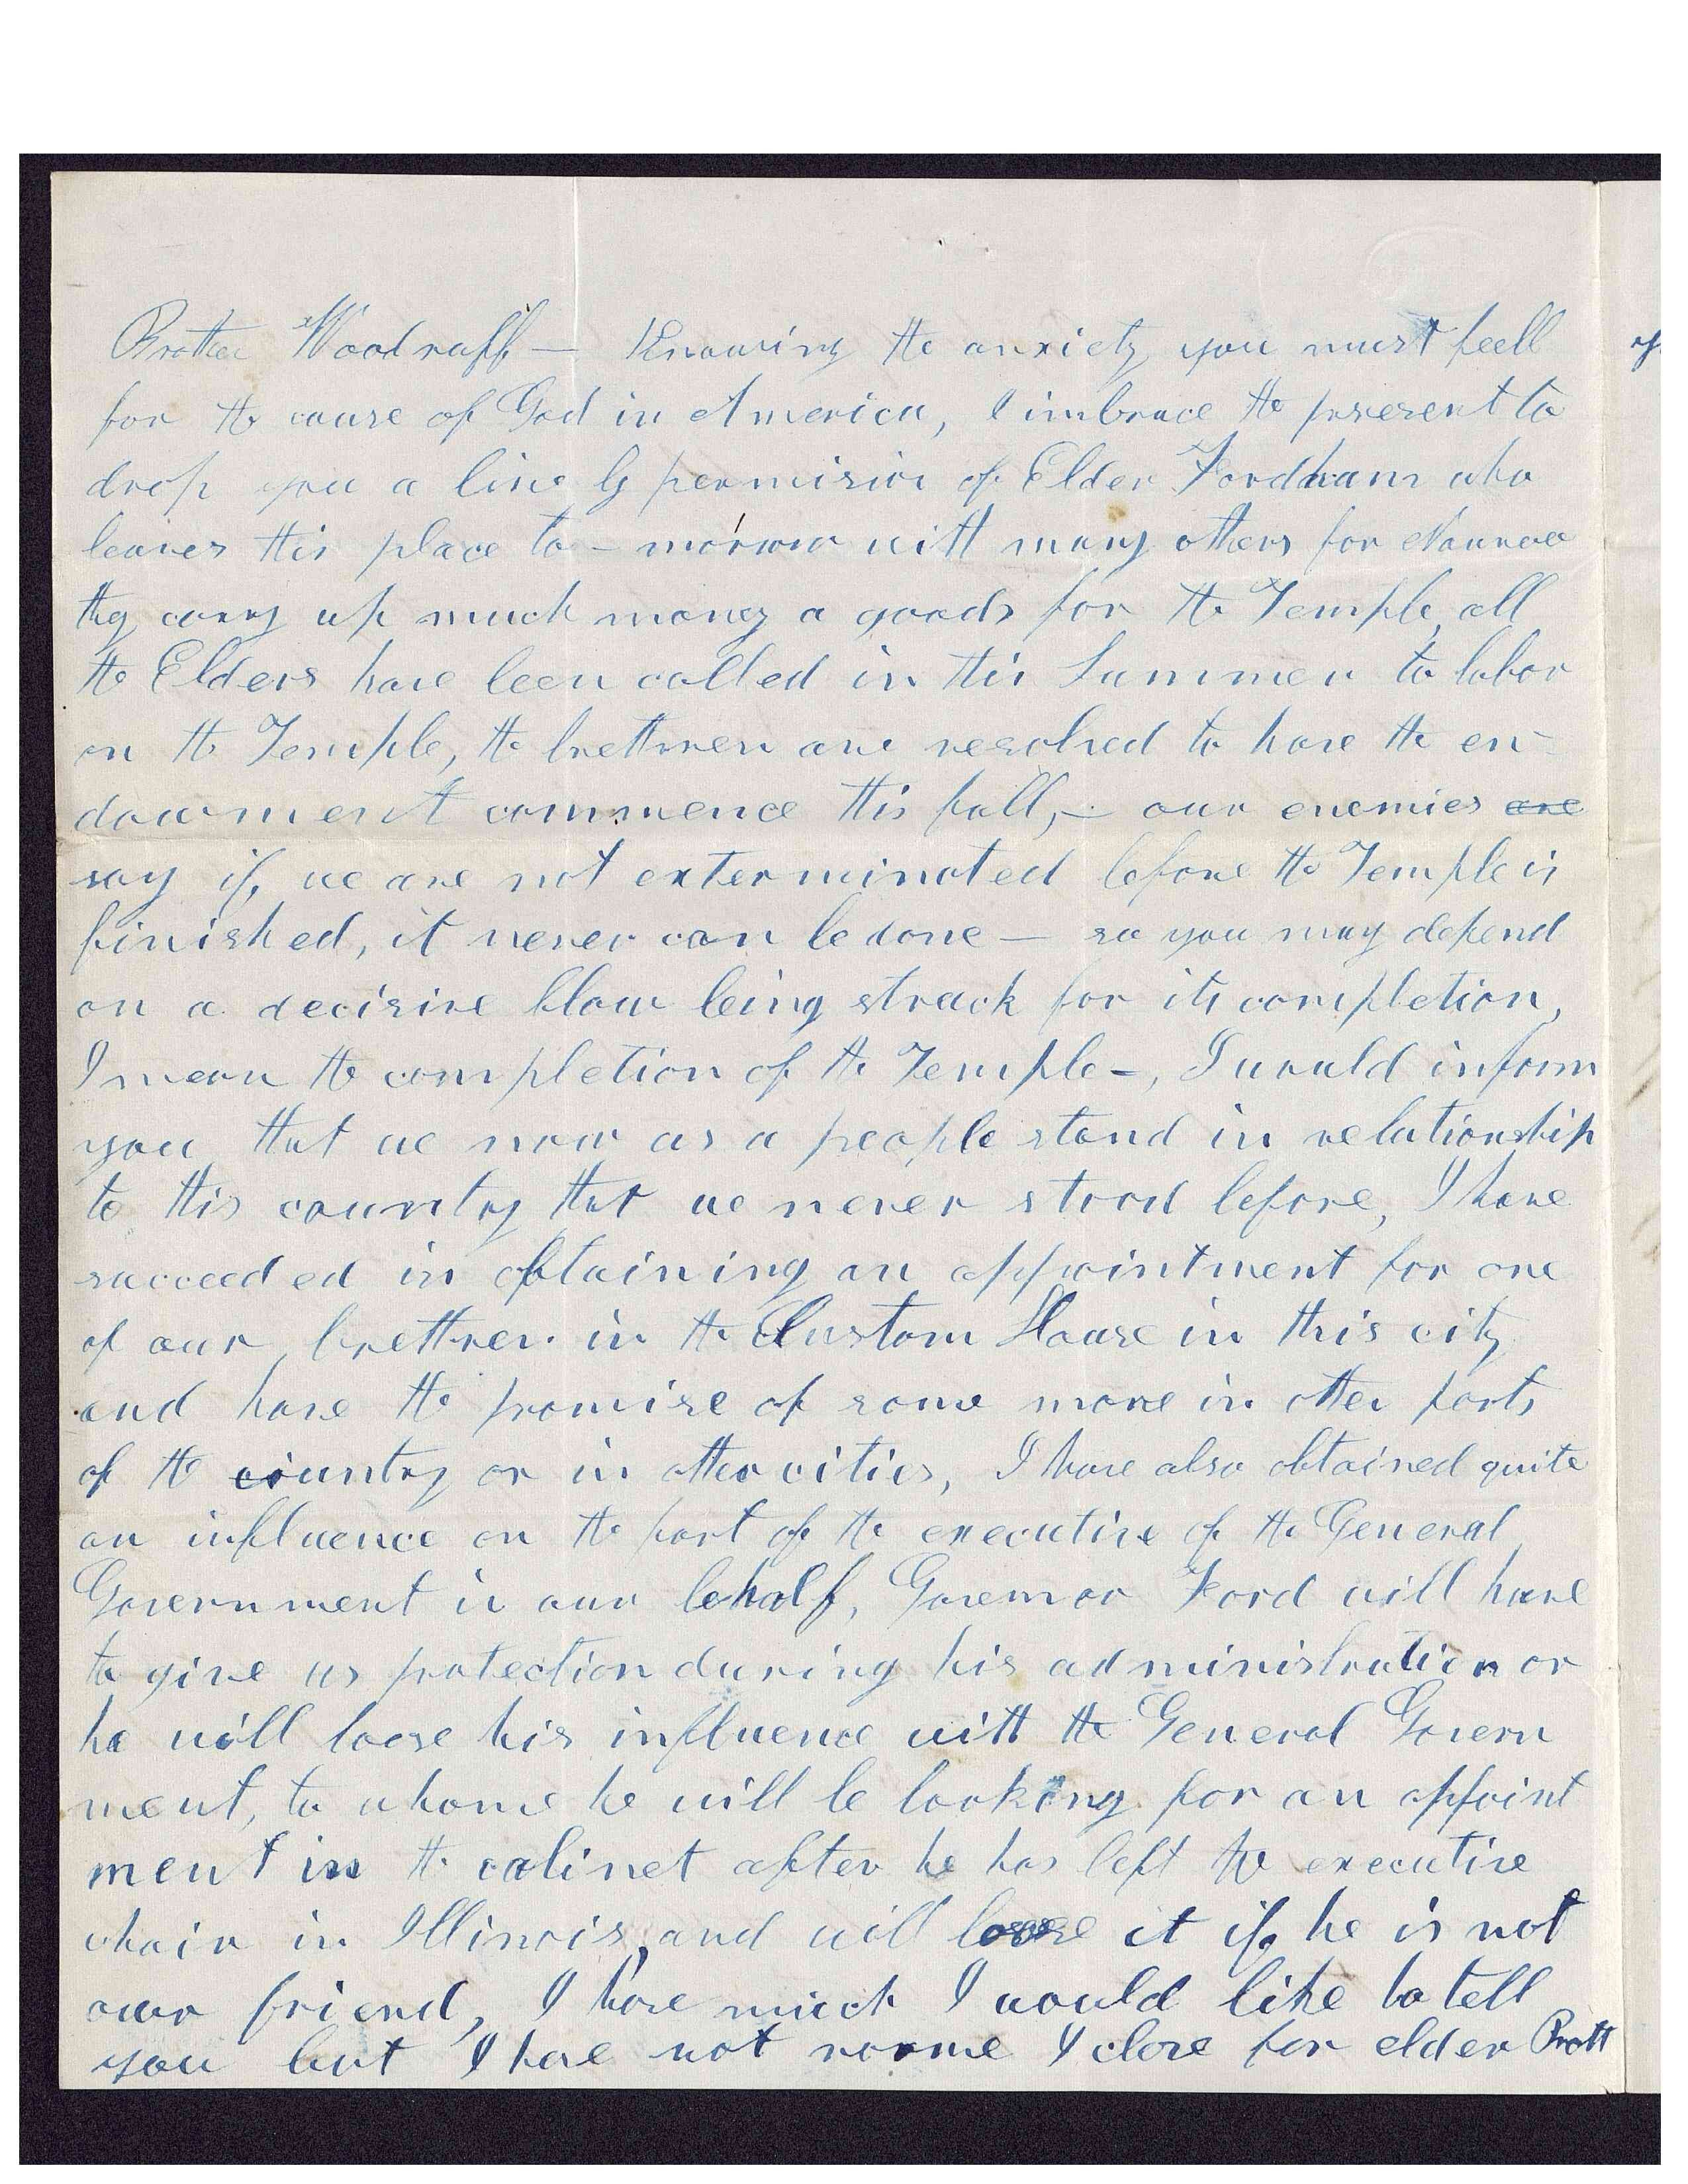 Brother Woodruff — Knowing the anxiety you must feell
for the cause of God in America, I imbrace the present to
drop you a line by permision of Elder Fordham who
leaves this place to-morrow with many others for Nauvoo
they carry up much money & goods for the Temple, all
the Elders have been called in this Summer to labor
on the Temple, the brethren are resolved to have the en-
dowment commence this fall, — our enemies are
say if we are not exterminated before the Temple is
finished, it never can be done — so you may depend
on a decisive blow being struck for its completion,
I mean the completion of the Temple —, I would inform
you that we now as a people stand in relationship
to this country that we never stood before, I have
succeeded in obtaining an appointment for one
of our brethren in the Custom House in this city
and have the promise of some more in other parts
of the country or in other cities, I have also obtained quite
an influence on the part of the executive of the General
Government in our behalf, Governor Ford will have
to give us protection during his administration or
he will loose his influence with the General Govern
ment, to whome he will be looking for an appoint
ment in the cabinet after he has left the executive
chair in Illinois, and will loose it if he is not
our friend, I have much I would like to tell
you but I have not roome I close for elder Pratt